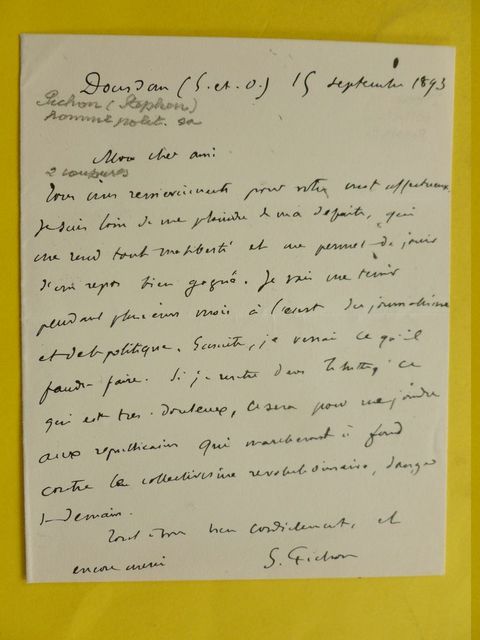 Dourdan (S. et. O.) 15 septembre 1893
Pichon (Stephen)
homme polit. sa
Mon cher ami
2 coupures
Tous mes remerciements pour votre mot affectueux.
Je suis loin de me plaindre de ma défaite, qui
me rend toute ma liberté et me permet de jouir
d'un repos bien gagné. Je vais me tenir
pendant plusieurs mois à l'écart du journalisme
et de la politique. Ensuite, je verrai ce qu'il
faudra faire. Si je rentre dans la lutte, ce
qui est très douteux, ce sera pour me joindre
aux républicains qui marcheront à fond
contre le collectivisme révolutionnaire, danger
de demain.
Tout à vous bien cordialement, et
encore merci
S. Pichon